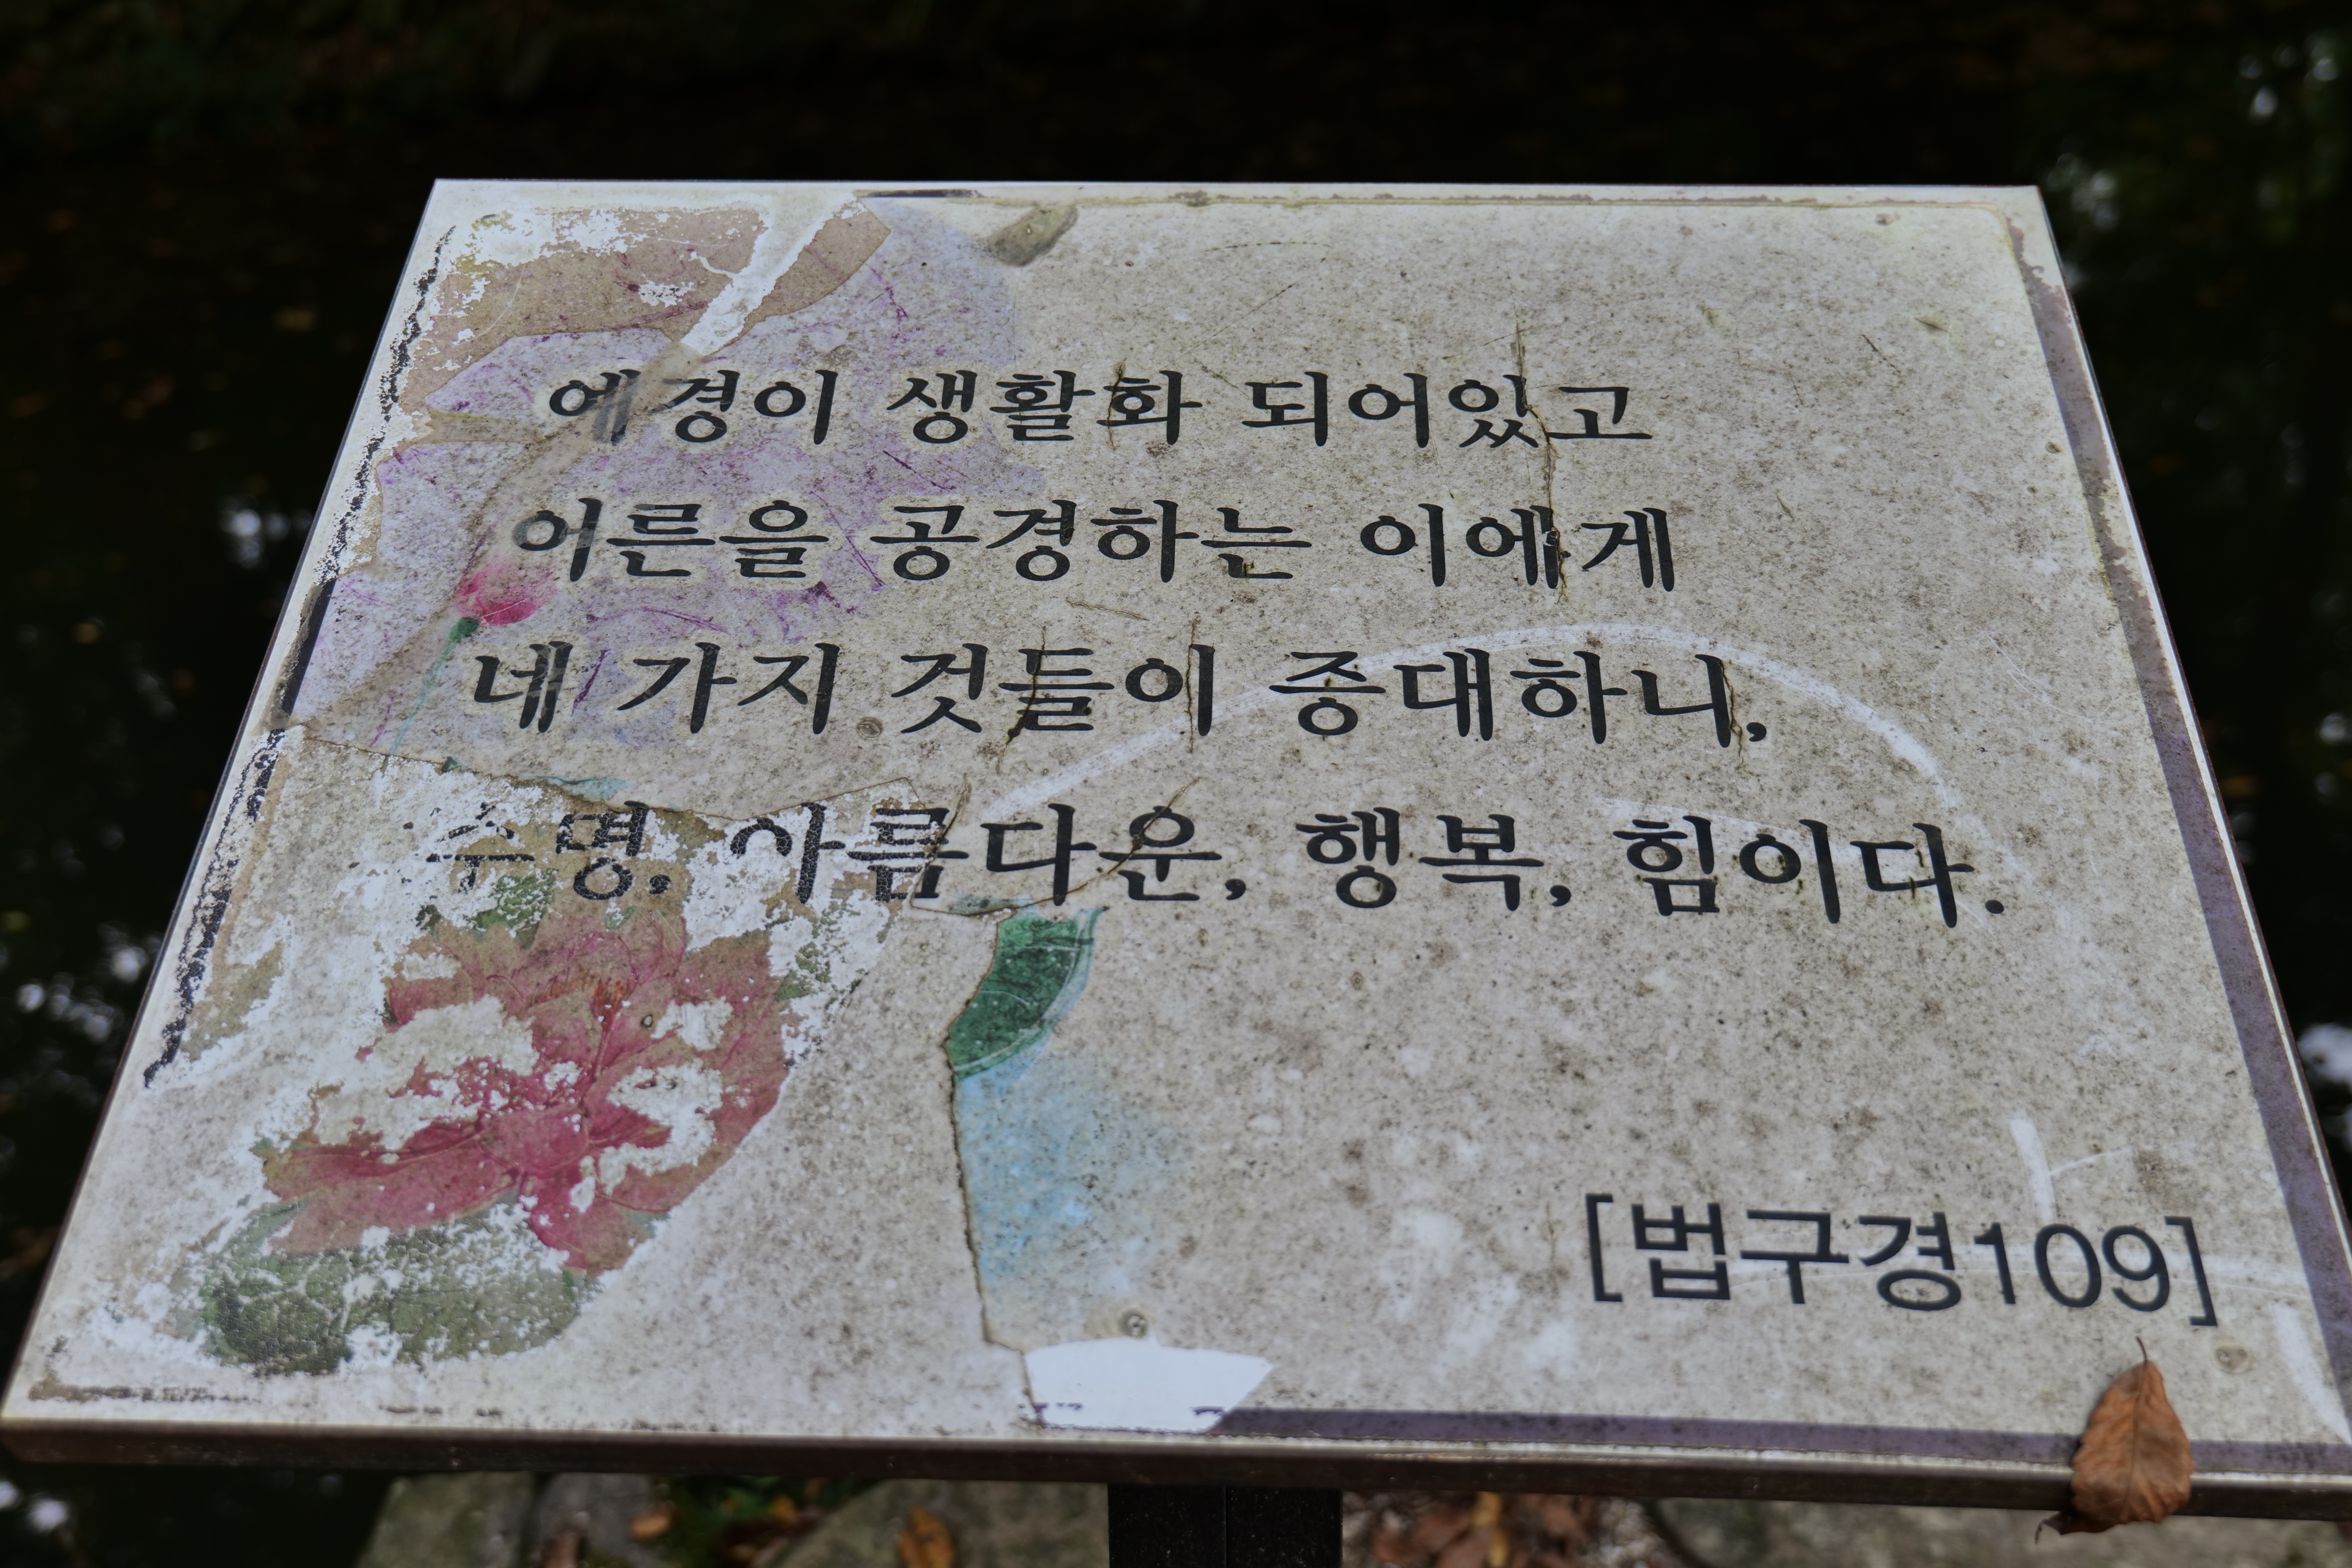 예경이 생활화 되어있고
어른을 공경하는 이에게
네 가지 것들이 증대하니,
수명, 아름다운, 행복, 힘이다.
[법구경109]